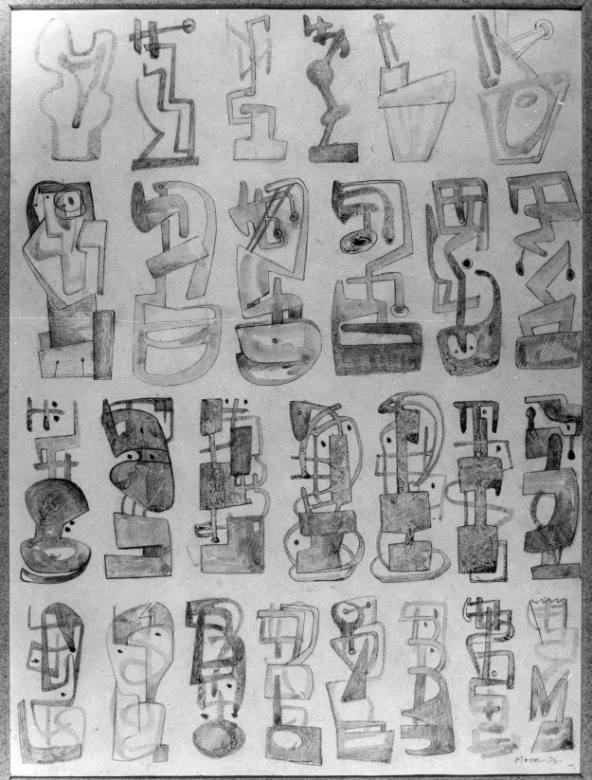 Moore 36.